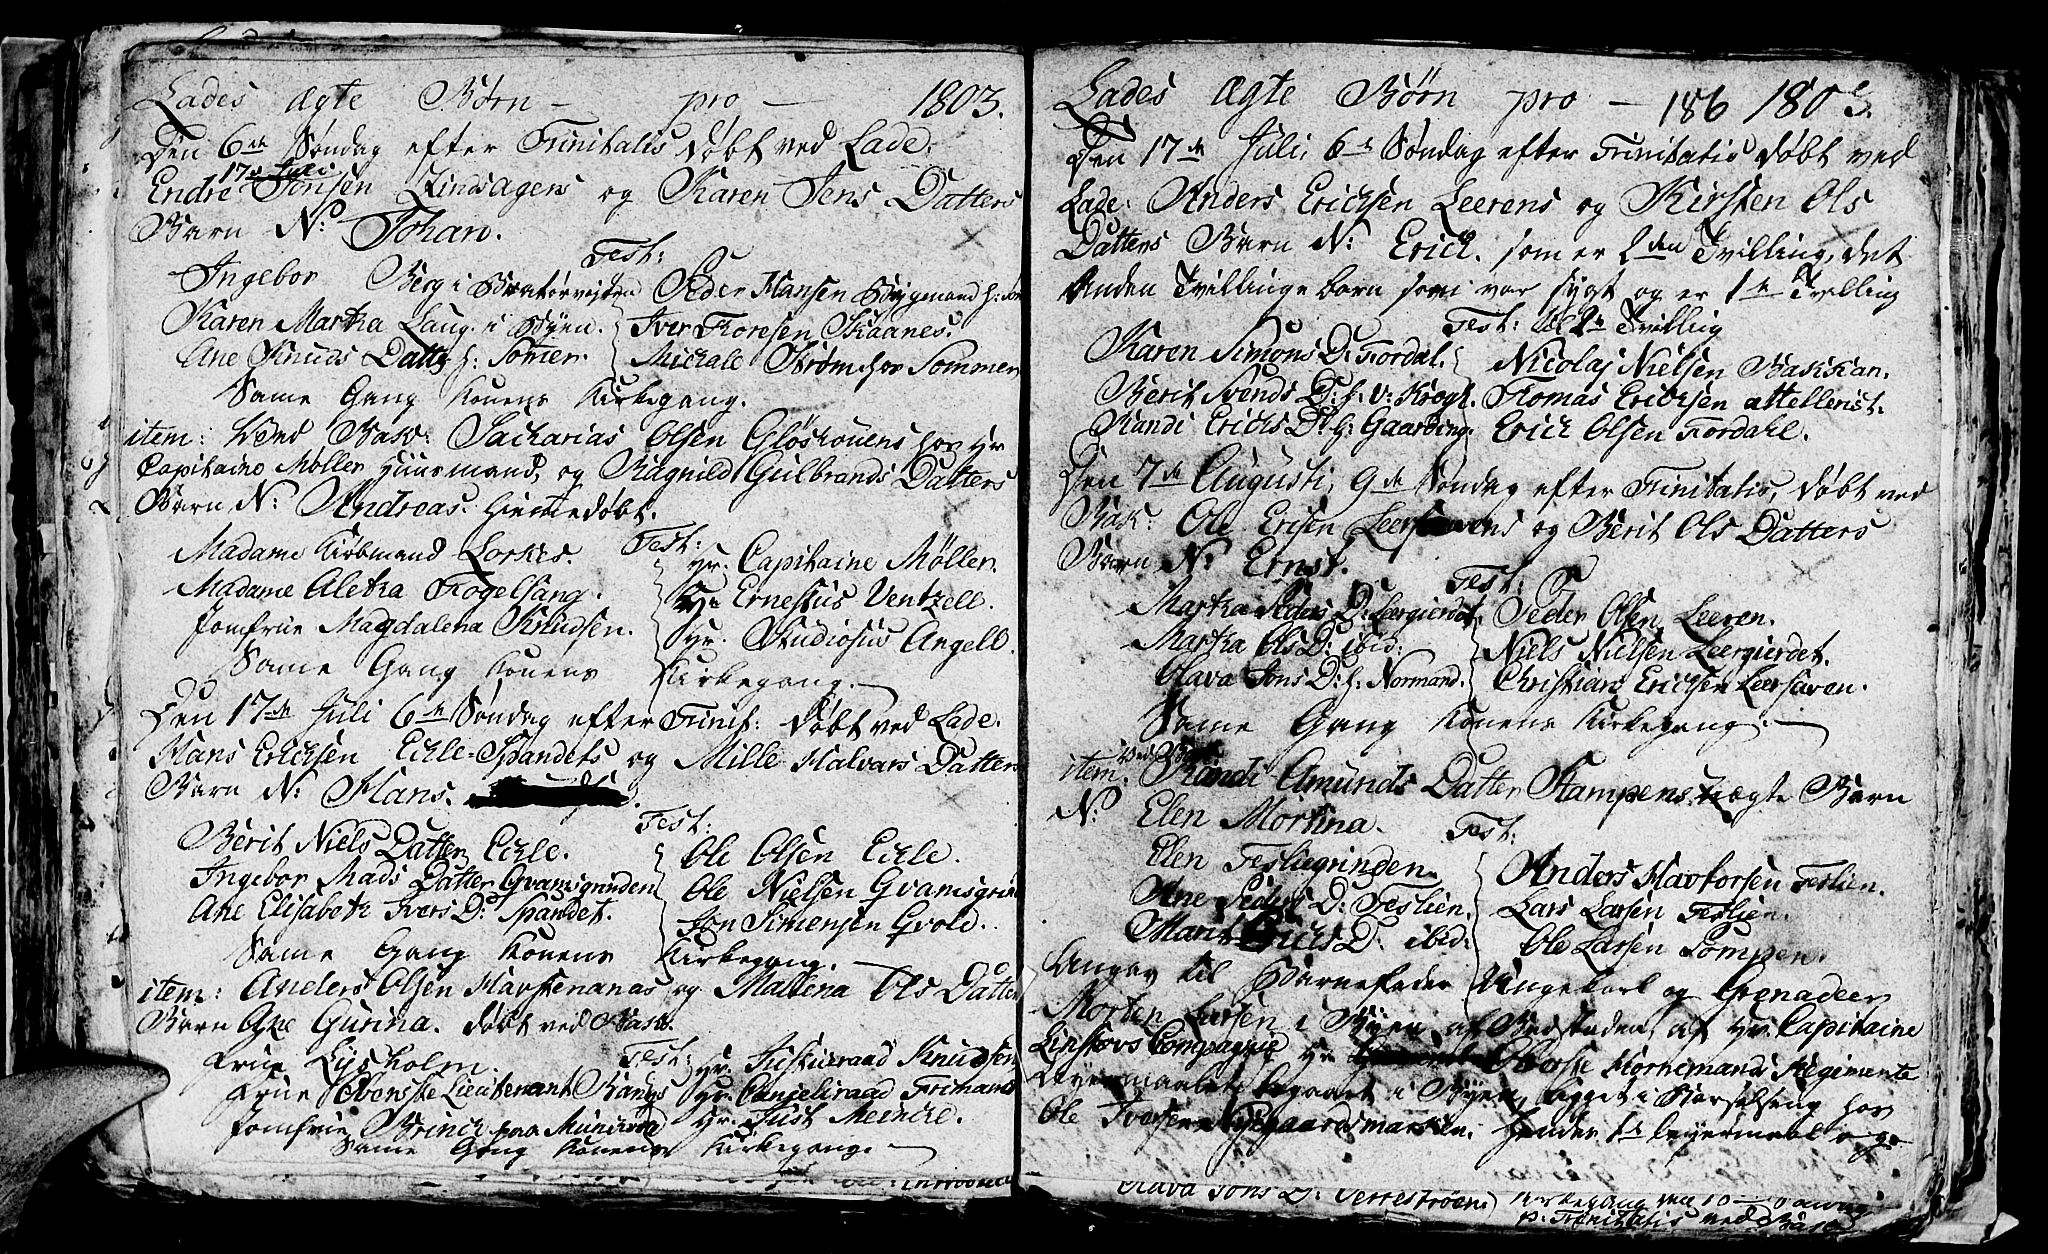 Lades ægte Børn – pro – 1803.
Den 6te Søndag efter Trinitatis døbt ved Lade.
17de Juli
Endre Jonsen Lindsagers og Karen Jens Datters
Barn N: Johan.
Test:
Ingebor Berg i Bratørvejten Peder Hansen Brygmand
Karen Martha Laug. i Byen. Iver Toresen Skaanes.
Ane Knuds Datt h: Somer. Michael Strøm hos Sommer
Same Gang Konens Kirkegang.
item: Zacharias Olsen Gløshouens hos Hr
Capitaine Møller Huusmand, og Ragnild Gulbrands Datters
Barn N: Andreas. Hiemedøbt.
Test:
Madame Kiøbmand Lorkes. Hr. Capitaine Møller.
Madame Aletha Fogelsang. Hr. Ernestus Ventzell.
Jomfrue Magdalena Knudsen. Hr. Studiosus Angell.
Same Gang Konens Kirkegang.
Den 17de Juli 6te Søndag efter Trinit: døbt ved Lade.
Hans Erichsen Eckle-Spandets og Mille Halvors Datters
Barn N: Hans.
Test:
Berit Niels Datter Eckle. Ole Olsen Eckle.
Ingebor Mads Datter Qvamsgrinden Ole Nielsen Qvamsgrin
Ane Elisabeth Ivers D: Spandet. Jon Simensen Qvold.
Same Gang Konens Kirkegang.
item: Anders Olsen Havstenanas og Malena Ols Datter
Barn Ane Gurina. døbt ved Bak.
Frue Lysholm. Test: Hr. Justitzraad Knudsen
Frue Øverste Lieutenant Bangs Hr. Cancelliraad Frimand
Jomfrue Brinck paa Munkvold Hr. Just Meincke.
Same Gang Konens Kirkegang.
Lades ægte Børn pro – 186 1803
Den 17de Juli, 6te Søndag efter Trinitatis døbt ved
Lade. Anders Erichsen Leerens og Kirsten Ols
Datters Barn N: Erick. som er 2den Tvilling, det
Anden Tvillinge barn som var sygt og er 1te Tvilling
Test: til 2de Tvilling
Karen Simons D: Fordal. Nicolaj Nielsen Bakkhan.
Berit Svends D: h. v: Krogh. Thomas Erichsen attellerist.
Randi Erichs D: h: Gaarding. Erich Olsen Fordahl.
Den 7de Augusti, 9de Søndag efter Trinitatis, døbt ved
Bak: Ole Ericsen Leersavens og Berit Ols Datters
Barn N: Ernst.
Test:
Martha Peders D: Leergierdet. Peder Olsen Leeren.
Martha Ols D: ibid: Niels Nielsen Leergierdet.
Olava Jons D: h: Normand. Christian Erichsen Leersaven.
Same Gang Konens Kirkegang.
item: ved Bak Randi Amunds Datter Stampens uægte Barn
N: Elen Mortina.
Test:
Elen Tesliegrinden. Anders Havtorsen Teslien.
Ane Peders D: Teslien. Lars Larsen Teslien.
Marit Erichs D: ibid: Ole Larsen Lompen.
Angav til Barnefader Ungekarl og Grenadeer
Morten Larsen i Byen af Hr. Capitaine
Linstovs Compagnie Hr. Hornemands Regimente
Leyermaalet begaaet i Byen, ligget i Barselseng hos
Ole Iversen Nygaardsmarken. hendes 1te leyermaal
Olava Jons D: Verrestrøen
p: Trinitatis ved Bak